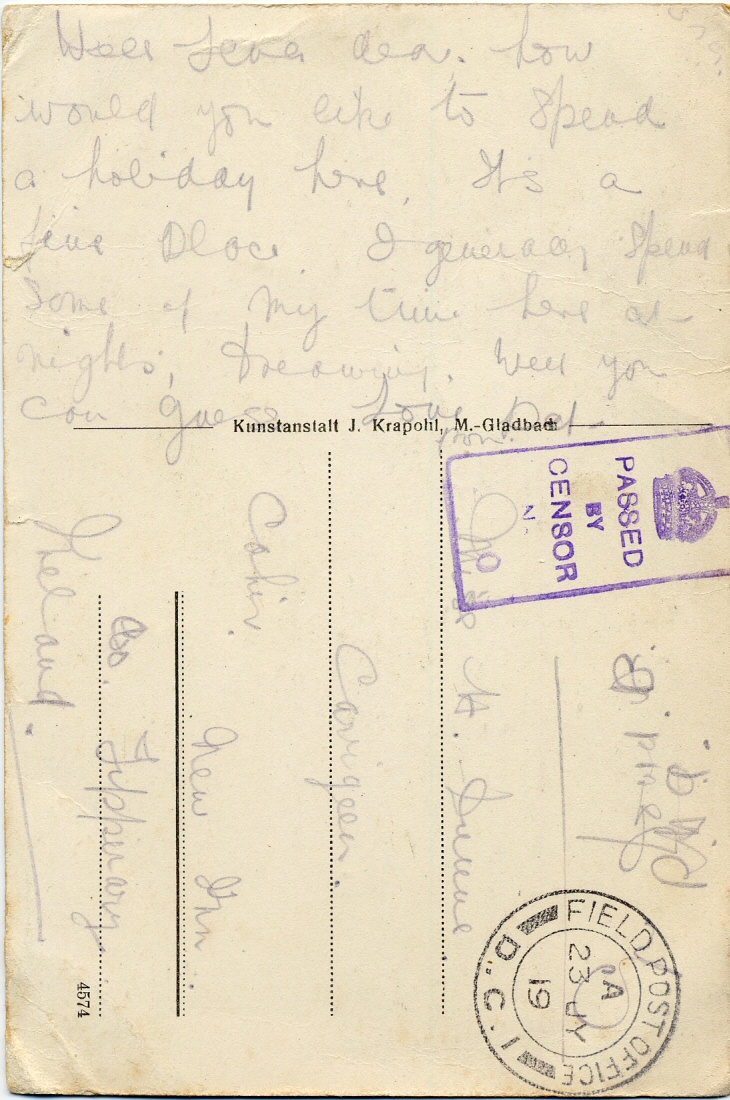 Well Lena dear, how
would you like to spend
a holiday here, It's a
fine place I generally spend
some of my time here at
nights, dreaming. Well you
can guess. Love Pat.
from
Kunstanstalt J. Krapohl, M.-Gladbach
PASSED
BY
CENSOR
No
Miss H.
Carrigeen.
Cahir.
New Inn
Co. Tipperary
Ireland.
FIELD POST OFFICE
D.C.1
A
23 JY
19
4574